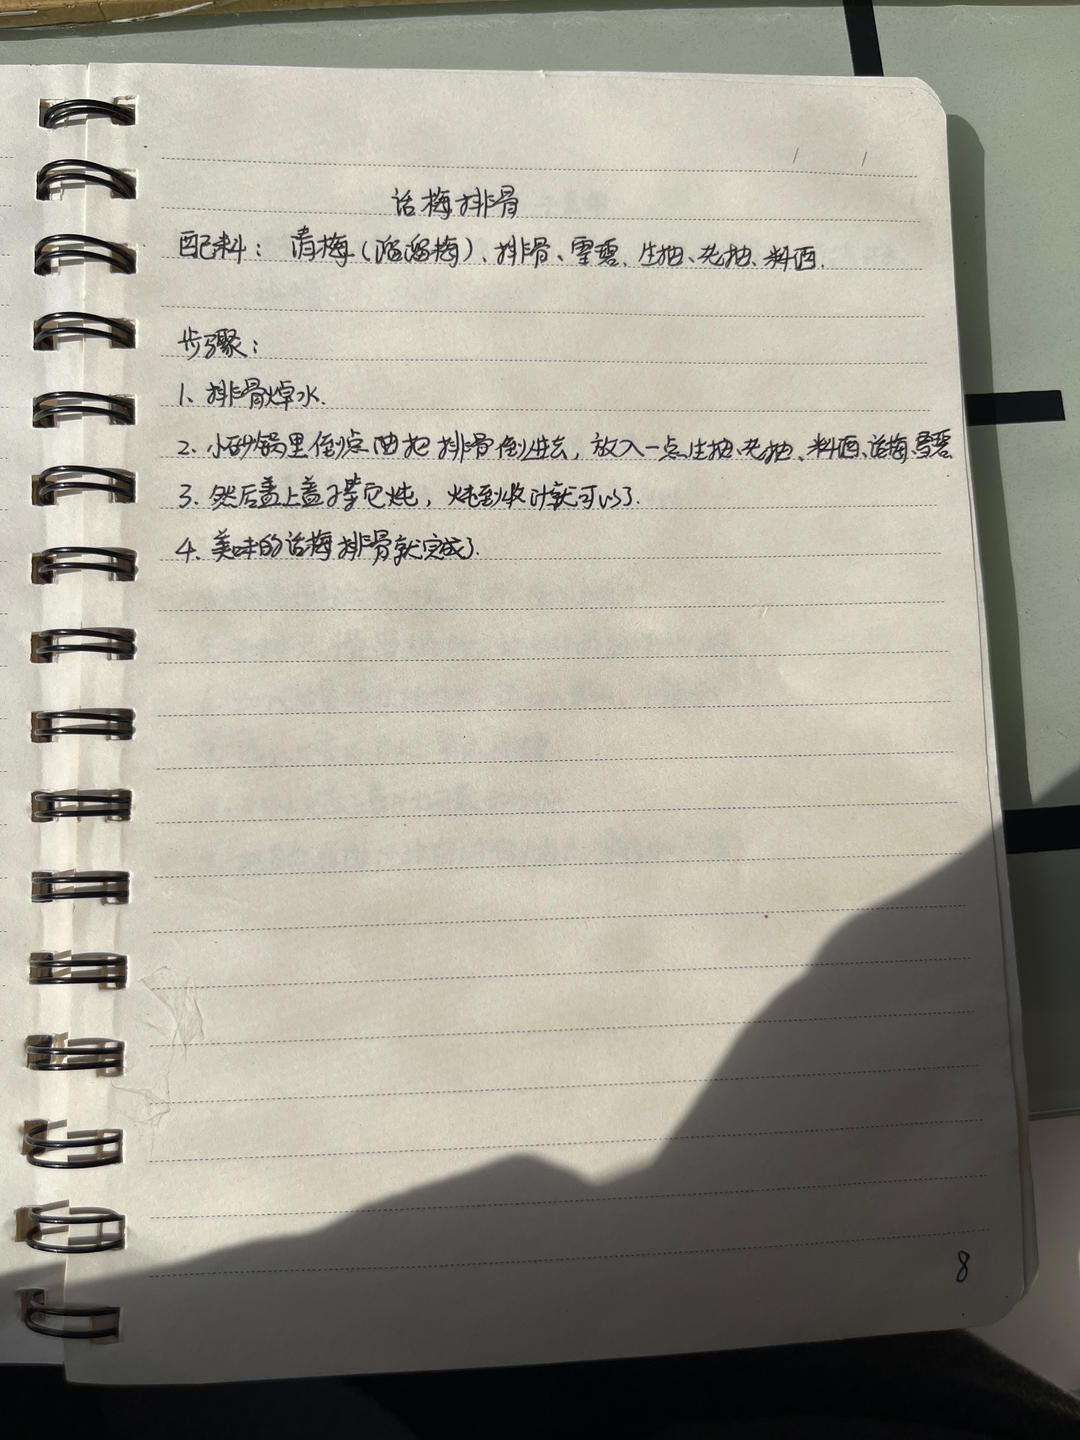 话梅排骨
配料：青梅(溜溜梅)、排骨、雪碧、生抽、老抽、料酒.
步骤：
1、排骨焯水.
2、小砂锅里倒点油把排骨倒进去，放入一点生抽、老抽、料酒、话梅、雪碧
3、然后盖上盖子等它炖，炖到收汁就可以了.
4、美味的话梅排骨就完成了.
8